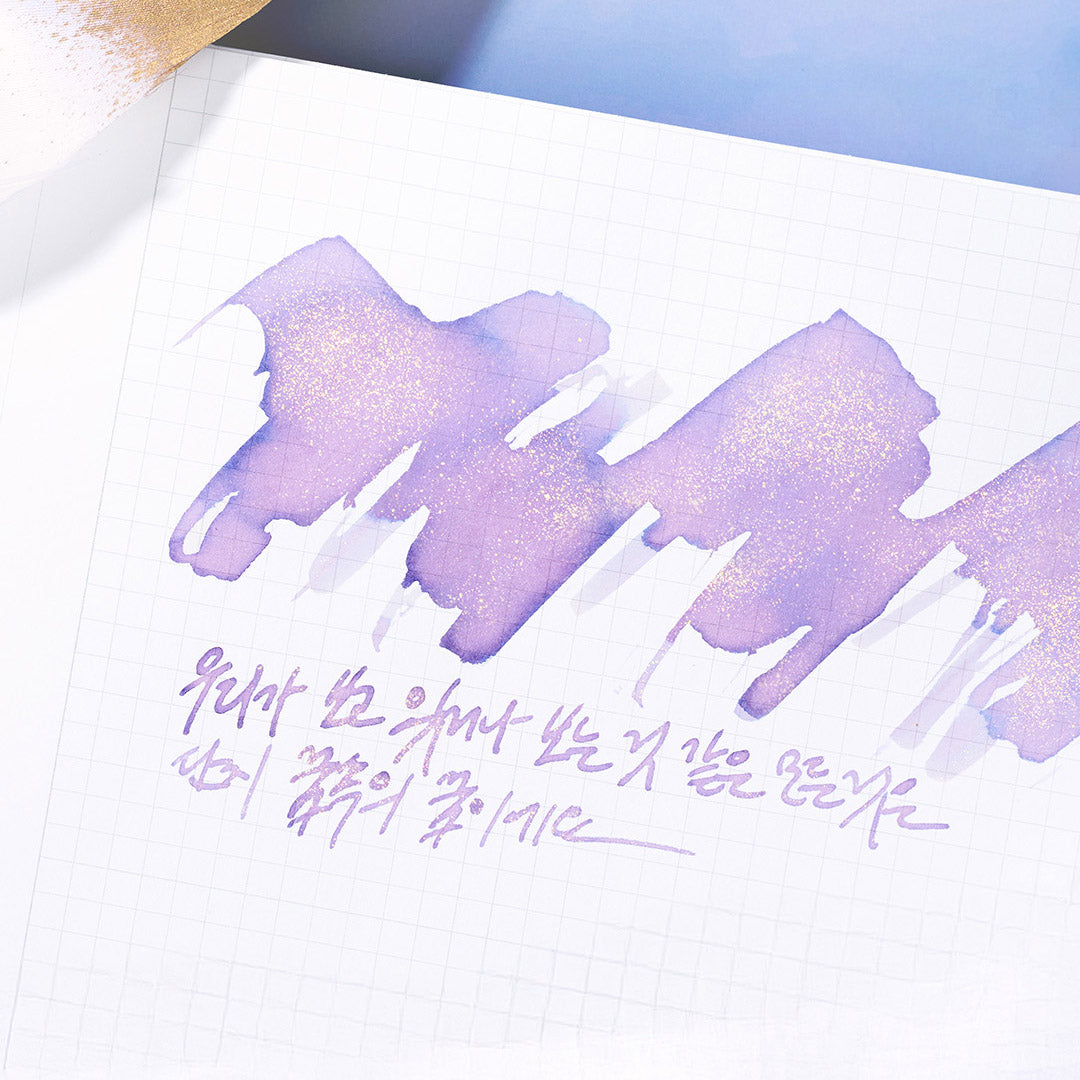 우리가 보고 있거나 보는 것 같은 모든 것은
단지 꿈속의 꿈이에요